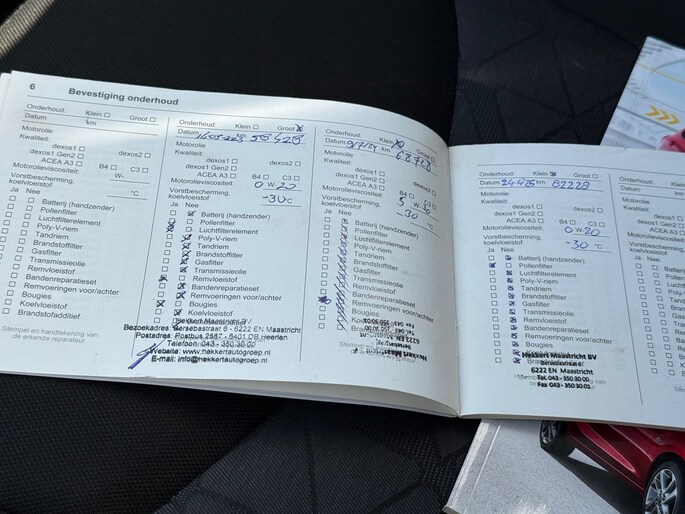 6 Bevestiging onderhoud
Onderhoud: Klein Groot
Datum km
Motorolie
Kwaliteit:
dexos1 dexos2
dexos1 Gen2
ACEA A3 B4 C3
Motorolieviscositeit: W-
Vorstbescherming, °C
koelvloeistof
Ja Nee
Batterij (handzender)
Pollenfilter
Luchtfilterelement
Poly-V-riem
Tandriem
Brandstoffilter
Gasfilter
Transmissieolie
Remvloeistof
Bandenreparatieset
Remvoeringen voor/achter
Bougies
Koelvloeistof
Brandstofadditief
Stempel en handtekening van
de erkende reparateur
Onderhoud: Klein Groot
Datum km 55425
Motorolie
Kwaliteit:
dexos1 dexos2
dexos1 Gen2
ACEA A3 B4 C3
Motorolieviscositeit: 0 W-20
Vorstbescherming, -30°C
koelvloeistof
Ja Nee
Batterij (handzender)
Pollenfilter
Luchtfilterelement
Poly-V-riem
Tandriem
Brandstoffilter
Gasfilter
Transmissieolie
Remvloeistof
Bandenreparatieset
Remvoeringen voor/achter
Bougies
Koelvloeistof
Hekkert Maastricht BV
Bezoekadres: Bersebastraat 6 - 6222 EN Maastricht
Postadres: Postbus 2587 - 6401 DB Heerlen
Telefoon: 043 - 350 30 00
Website: www.hekkertautogroep.nl
E-mail: info@hekkertautogroep.nl
Onderhoud: Klein Groot
Datum km 68748
Motorolie
Kwaliteit:
dexos1 dexos2
dexos1 Gen2
ACEA A3 B4 C3
Motorolieviscositeit: W-
Vorstbescherming, -30 °C
koelvloeistof
Ja Nee
Batterij (handzender)
Pollenfilter
Luchtfilterelement
Poly-V-riem
Tandriem
Brandstoffilter
Gasfilter
Transmissieolie
Remvloeistof
Bandenreparatieset
Remvoeringen voor/achter
Bougies
Koelvloeistof
Hekkert Maastricht
Onderhoud: Klein Groot
Datum 24-4-25 km 82228
Motorolie
Kwaliteit:
dexos1 dexos2
dexos1 Gen2
ACEA A3 B4 C3
Motorolieviscositeit: 0 W-20
Vorstbescherming, -30 °C
koelvloeistof
Ja Nee
Batterij (handzender)
Pollenfilter
Luchtfilterelement
Poly-V-riem
Tandriem
Brandstoffilter
Gasfilter
Transmissieolie
Remvloeistof
Bandenreparatieset
Remvoeringen voor/achter
Bougies
Koelvloeistof
Hekkert Maastricht BV
6222 EN Maastricht
Tel. 043 - 350 30 00
Fax 043 - 350 30 01
Onderhoud:
Datum
Motorolie
Kwaliteit:
Motorolieviscositeit
Vorstbescherming,
koelvloeistof
Ja Nee